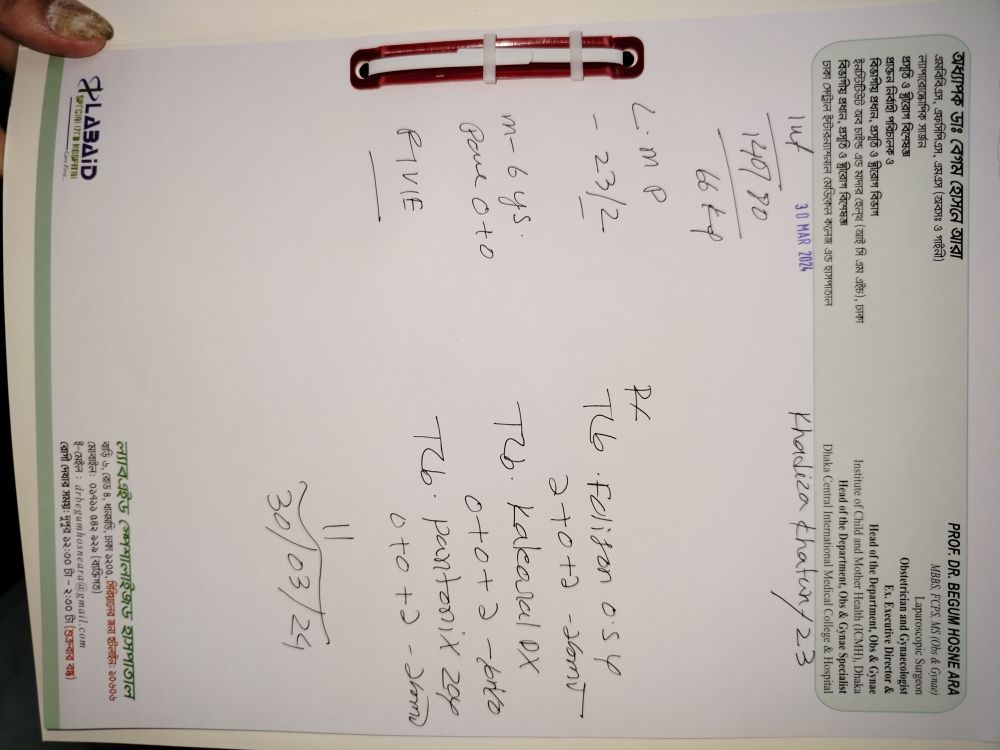 অধ্যাপক ডাঃ বেগম হোসনে আরা
এমবিবিএস, এফসিপিএস, এমএস (অবসঃ ও গাইনী)
ল্যাপারোস্কোপিক সার্জন
প্রসূতি ও স্ত্রীরোগ বিশেষজ্ঞ
প্রাক্তন নির্বাহী পরিচালক ও
বিভাগীয় প্রধান, প্রসূতি ও স্ত্রীরোগ বিভাগ
ইনস্টিটিউট অব চাইল্ড এন্ড মাদার হেল্থ (আই সি এম এইচ), ঢাকা
বিভাগীয় প্রধান, প্রসূতি ও স্ত্রীরোগ বিশেষজ্ঞ
ঢাকা সেন্ট্রাল ইন্টারন্যাশনাল মেডিকেল কলেজ এন্ড হাসপাতাল
PROF. DR. BEGUM HOSNE ARA
MBBS, FCPS, MS (Obs & Gynae)
Laparoscopic Surgeon
Obstetrician and Gynaecologist
Ex. Executive Director &
Head of the Department, Obs & Gynae
Institute of Child and Mother Health (ICMH), Dhaka
Head of the Department, Obs & Gynae Specialist
Dhaka Central International Medical College & Hospital
30 MAR 2024
Khadiza Khatun/23
140/80
66 kg
L.M.P
- 23/2
m- 6 ys.
0+0
Rx
Tab. Folison 0.5
২+0+২
Tab. DX
0+0+২
Tab. Pantonix 20
0+0+২
30/03/24
LABAID
SPECIALIZED HOSPITAL
ল্যাবএইড স্পেশালাইজড হাসপাতাল
বাড়ি ৬, রোড ৪, ধানমন্ডি, ঢাকা ১২০৫, সিরিয়ালের জন্য হটলাইন: ১০৬০৬
মোবাইল: ০১৭১১ ৫৪২ ৯২৯ (ব্যক্তিগত)
ই-মেইল : drbegumhosneara@gmail.com
রোগী দেখার সময়: দুপুর ১২:৩০ টা - ২:৩০ টা (শুক্রবার বন্ধ)